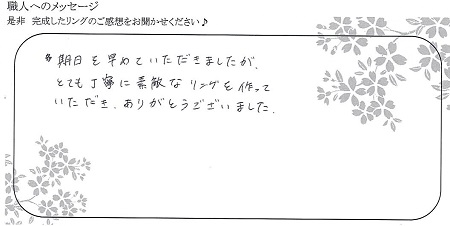 職人へのメッセージ
是非 完成したリングのご感想をお聞かせください♪
期日を早めていただきましたが、
とても丁寧に素敵なリングを作って
いただき、ありがとうございました。